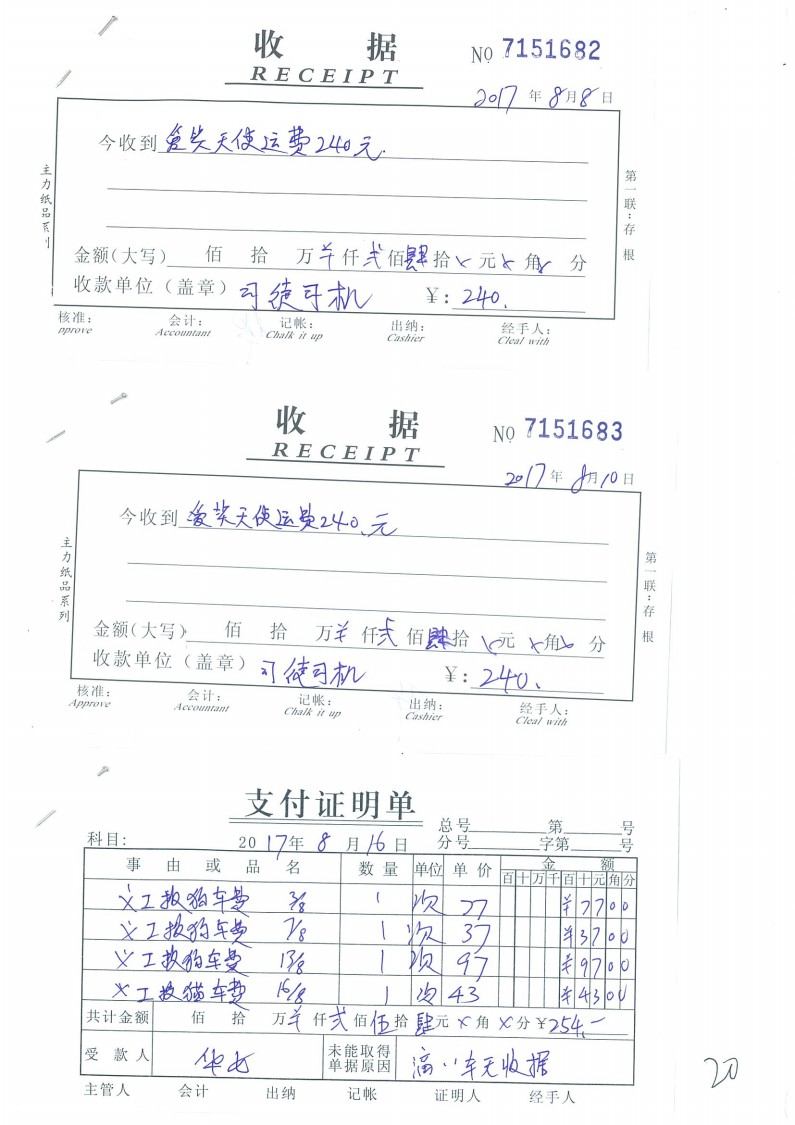 收 据
RECEIPT
NO 7151682
2017 年 8 月 8 日
今收到 爱笑天使运费240元.
金额(大写) 佰 拾 万 仟 弍 佰 肆 拾 元 角 分
收款单位(盖章) 司徒司机 ¥: 240.
主力纸品系列
第一联:存根
核准: 会计: 记帐: 出纳: 经手人:
pprove Accountant Chalk it up Cashier Cleal with
收 据
RECEIPT
NO 7151683
2017 年 8 月 10 日
今收到 爱笑天使运费240.元
金额(大写) 佰 拾 万 仟 弍 佰 肆 拾 元 角 分
收款单位(盖章) 司徒司机 ¥: 240.
主力纸品系列
第一联:存根
核准: 会计: 记帐: 出纳: 经手人:
Approve Accountant Chalk it up Cashier Cleal with
支付证明单
总号 第 号
科目: 2017年 8 月 16 日 分号 字第 号
事 由 或 品 名 数 量 单位 单 价 金 额
百 十 万 千 百 十 元 角 分
义工救狗车费 1 次 27 ¥2700
义工救狗车费 7/8 1 次 37 ¥3700
义工救狗车费 13/8 1 次 97 ¥9700
义工救猫车费 16/8 1 次 43 ¥4300
共计金额 佰 拾 万 仟 弍 佰 伍 拾 肆 元 × 角 × 分 ¥254.—
受 款 人 未能取得单据原因 车无收据
主管人 会计 出纳 记帐 证明人 经手人
20